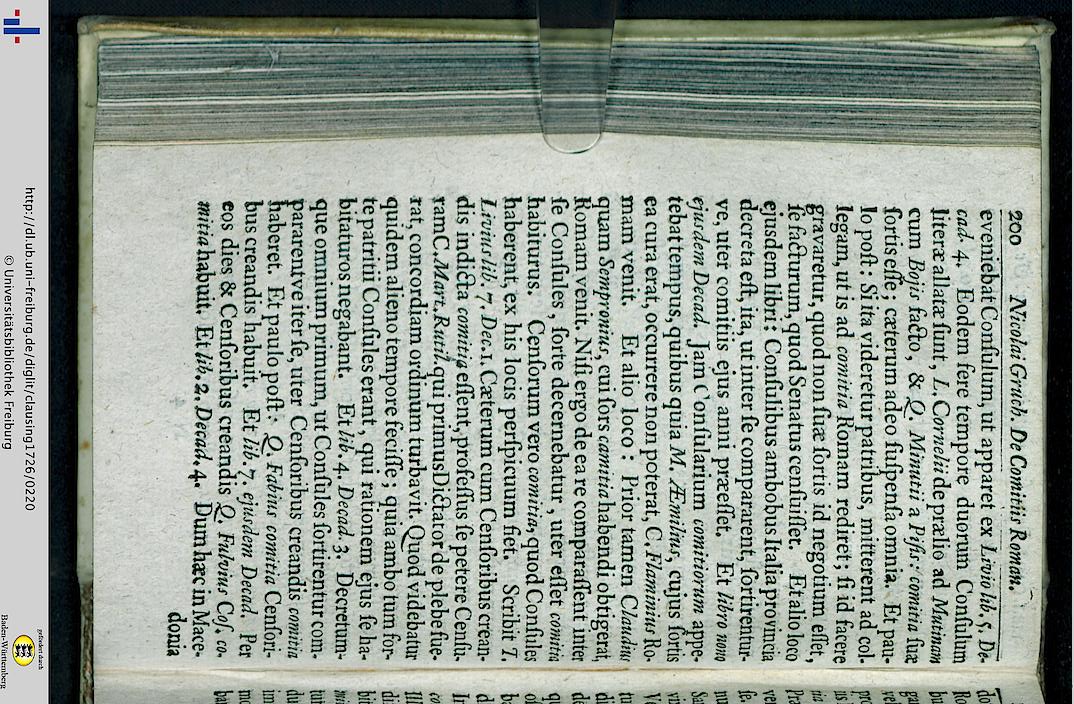 200 Nicolai Gruch. De Comitiis Roman.
eveniebat Consulum, ut apparet ex Livio lib. 5. De-
cad. 4. Eodem fere tempore duorum Consulum
literæ allatæ sunt, L. Cornelii de prælio ad Mutinam
cum Bojis facto, & Q. Minutii a Pisis: comitia suæ
sortis esse; cæterum adeo suspensa omnia. Et pau-
lo post: Si ita videretur patribus, mitterent ad col-
legam, ut is ad comitia Romam rediret; si id facere
gravaretur, quod non suæ sortis id negotium esset,
se facturum, quod Senatus censuisset. Et alio loco
ejusdem libri: Consulibus ambobus Italia provincia
decreta est, ita, ut inter se compararent, sortirentur-
ve, uter comitiis ejus anni præesset. Et libro nono
ejusdem Decad. Jam Consularium comitiorum appe-
tebat tempus, quibus quia M. Æmilius, cujus sortis
ea cura erat, occurrere non poterat, C. Flaminius Ro-
mam venit. Et alio loco: Prior tamen Claudius
quam Sempronius, cui sors comitia habendi obtigerat,
Romam venit. Nisi ergo de ea re comparassent inter
se Consules, sorte decernebatur, uter esset comitia
habiturus. Censorum vero comitia, quod Consules
haberent, ex his locis perspicuum fiet. Scribit T.
Livius lib. 7. Dec. 1. Cæterum cum Censoribus crean-
dis indicta comitia essent, professus se petere Censu-
ram C. Mart. Rutil. qui primus Dictator de plebe fue-
rat, concordiam ordinum turbavit. Quod videbatur
quidem alieno tempore fecisse; quia ambo tum for-
te patritii Consules erant, qui rationem ejus se ha-
bituros negabant. Et lib. 4. Decad. 3. Decretum-
que omnium primum, ut Consules sortirentur com-
pararentve inter se, uter Censoribus creandis comitia
haberet. Et paulo post: Q. Fabius comitia Censori-
bus creandis habuit. Et lib. 7. ejusdem Decad. Per
eos dies & Censoribus creandis Q. Fulvius Cos. co-
mitia habuit. Et lib. 2. Decad. 4. Dum hæc in Mace-
donia
http://dl.ub.uni-freiburg.de/diglit/clausing1726/0220
© Universitätsbibliothek Freiburg
gefördert durch
Baden-Württemberg